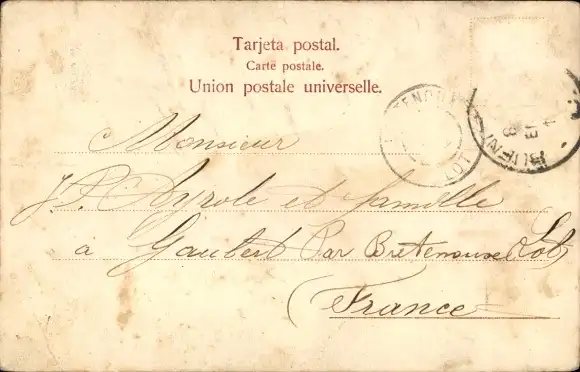 Tarjeta postal.
Carte postale.
Union postale universelle.
Monsieur
J. P. Ayrole et famille
à Gaubert Par Bretenoux (Lot)
(France
LOT